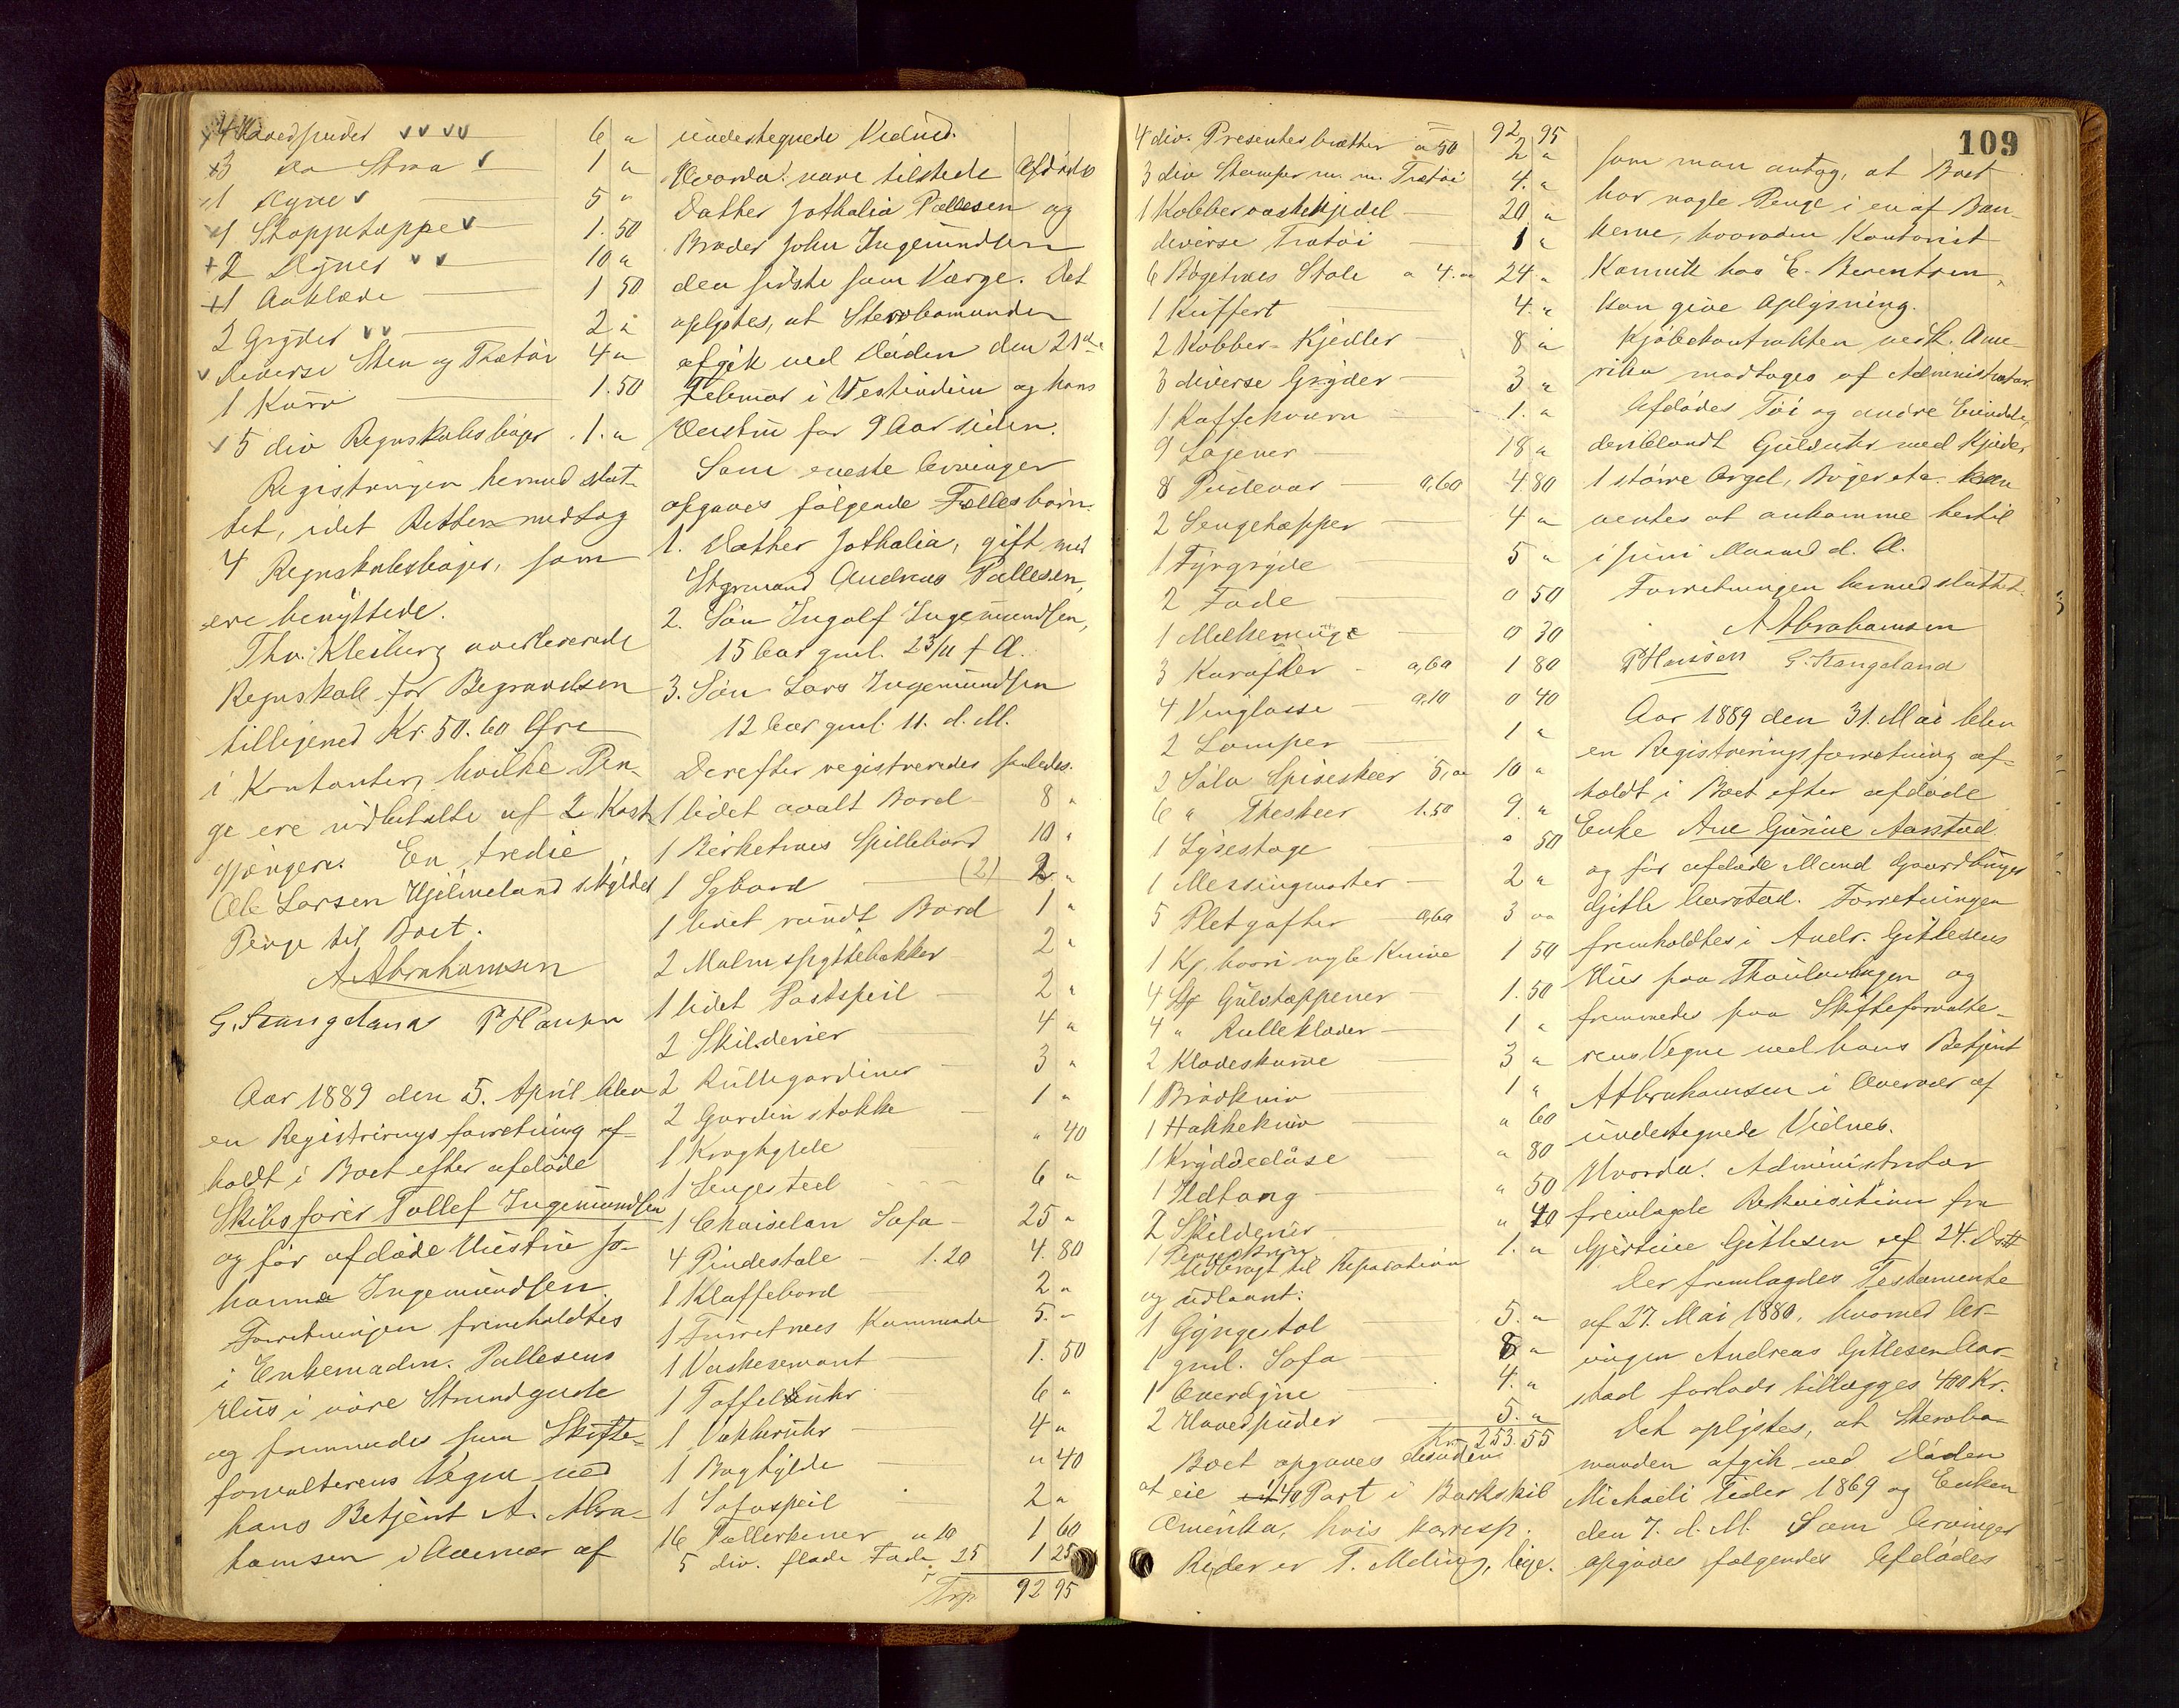 4 Hovedpuder 6 "
3 do Straa 1 "
1 Dyne 5 "
1 Stoppetæppe 1.50
2 Dyner 10 "
1 Aaklæde 1 50
2 Gryder 2 "
diverse Sten og Trætøi 4 "
1 Kurv 1.50
5 div Regnskabsbøger 1. "
Registringen hermed slut-
tet, idet Retten modtog
4 Regnskabsbøger, som
ere benyttede.
Thv. Kleiberg overleverede
Regnskab for Begravelsen
tilligemed Kr. 50.60 Øre
i Kontanter, hvilke Pen-
ge ere udbetalte af 2 Kost
gjængere. En tredie
Ole Larsen Hjelmeland skylder
Penge til Boet.
A Abrahamsen
G. Stangeland P Hansen
Aar 1889 den 5. April blev
en Registreringsforretning af-
holdt i Boet efter afdøde
Skibsfører Tollef Ingemundsen
og før afdøde Hustru Jo-
hanna Ingemundsen.
Forretningen fremholdtes
i Enkemadm. Pallesens
Hus i øvre Strandgade
og fremmedes paa Skifte-
forvalterens Vegne ved
hans Betjent A. Abra-
hamsen i Overvær af
undertegnede Vidner.
Hvorda: vare tilstede Afdødes
Datter Jothalia Pallesen og
Broder John Ingemundsen
den sidste som Værge. Det
oplystes, at Stervbomanden
afgik ved Døden den 21de
Februar i Vestindien og hans
Hustru for 9 Aar siden.
Som eneste Arvinger
opgaves følgende Fællesbørn.
1. Datter Jothalia, gift med
Styrmand Andreas Pallesen,
2. Søn Ingolf Ingemundsen,
15 Aar gml. 23/11 f A.
3. Søn Lars Ingemundsen
12 Aar gml. 11. d. M.
Derefter registreredes saaledes.
1 lidet ovalt Bord 8 "
1 Birketræes Spillebord 10 "
1 Sybord (2) 2 "
1 lidet rundt Bord 1 "
2 Malm spyttebakker 2 "
1 lidet Postspeil 2 "
2 Skilderier 4 "
2 Rullegardiner 3 "
2 Gardinstokke 1 "
1 Kroghylde " 40
1 Sengested 6 "
1 Chaiselon Sofa 25 "
4 Pindestole 1.20 4.80
1 Klaffebord 2 "
1 Furretræes Kommode 5. "
1 Vaskeservant 1.50
1 Taffeluhr 6 "
1 Vækkeruhr 4 "
1 Boghylde " 40
1 Sofaspeil 2 "
16 Tallerkener a 10 1 60
5 div. flade Fade 25 1 25
Trsp. 92 95
4 div. Presenterbrætter a 50 2 "
92 95
3 div Stamper m. m. Trætøi 4. "
1 Kobbervaskekjedel 20 "
diverse Trætøi 1 "
6 Bøgetræes Stole a 4. " 24 "
1 Kuffert 4. "
2 Kobber-Kjedler 8 "
3 diverse Gryder 3 "
1 Kaffekværn 1. "
9 Lagener 18 "
8 Pudevar 0,60 4.80
2 Sengetæpper 4 "
1 Tyrgryde 5 "
2 Fade 0 50
1 Melkemugge 0 30
3 Karafler 0,60 1 80
4 Vinglasse 0,10 0 40
2 Lamper 1 "
2 Sølv Spiseskeer 5,00 10 "
6 " Theskeer 1.50 9. "
1 Lysestage 0 50
1 Messingmorter 2 "
5 Pletgafler 0,60 3 00
1 Kj. hvori nogle Knive 1 50
4 St Gulvtæpper 1.50
4 " Rulleklæder 1 "
2 Klædeskurve 3 "
1 Brødkniv 1 "
1 Hakkekniv " 60
1 Kryddedaase " 80
1 Ildtang " 50
2 Skilderier " 40
1 1. "
Udbragt til Reparation
og udlaant:
1 Gyngestol 5. "
1 gml. Sofa 8 "
1 Overdyne 4. "
2 Hovedpuder 5. "
Kr. 253.55
Boet opgaves desuden
at eie 1/40 Part i Barkskib
Amerika, hvis korresp.
Reder er T. Meling, lige-
109
som man antog, at Boet
har nogle Penge i en af Ban-
kerne, hvorom Kontorist
hos E. Berentsen
kan give Oplysning.
Kjøbekontrakten vedk. Ame-
rika modtages af Administrator.
Afdødes Tøi og andre Eiendele,
deriblandt Gulduhr med Kjede,
1 større Orgel, Bøger etc. kan
ventes at ankomme hertil
i Juni Maaned d. A.
Forretningen hermed sluttet.
A Abrahamsen
P Hansen G. Stangeland
Aar 1889 den 31. Mai blev
en Registreringsforretning af-
holdt i Boet efter afdøde
Enke Ane Gurine Aarstad
og før afdøde Mand Gaardbruger
Gitle Aarstad. Forretningen
fremholdtes i Andr. Gitlesens
Hus paa Thoulovhaugen og
fremmedes paa Skifteforvalte-
rens Vegne ved hans Betjent
A Abrahamsen i Overvær af
undertegnede Vidner.
Hvorda: Administrator
fremlagde Rekvisition fra
Gjertine Gitlesen af 24. Ds
Der fremlagdes Testamente
af 27. Mai 1880, hvorved Ar-
vingen Andreas Gitlesen Aar-
stad forlods tillægges 400 Kr.
Det oplystes, at Stervbo-
manden afgik ved Døden
Michaeli Tider 1869 og Enken
den 7. d. M. Som Arvinger
opgaves følgende Afdødes